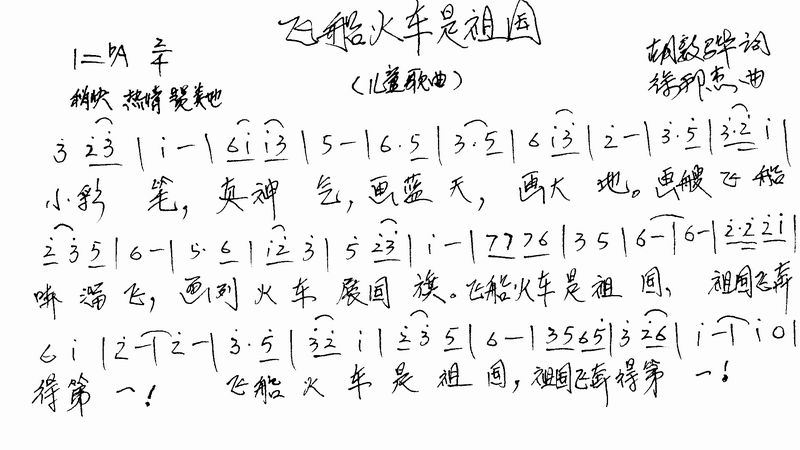 飞船火车是祖国
1=bA 2/4
(儿童歌曲)
词
稍快 热情 赞美地
徐邦杰 曲
3 2̇3̇ | i - | 6i i3̇ | 5 - | 6·5 | 3·5 | 6 i3̇ | 2̇ - | 3̇·5̇ | 3̇·2̇ i |
小彩 笔, 真神 气, 画蓝 天, 画大 地。画艘飞船
2̇ 3̇ 5 | 6 - | 5·6 | i2̇ 3̇ | 5 2̇3̇ | i - | 7776 | 35 | 6 - | 6 - | 2̇·2̇ 2̇i |
溜飞, 画列 火车 展国 旗。飞船火车是祖 国, 祖国飞奔
6 i | 2̇ - | 2̇ - | 3̇·5̇ | 3̇2̇ i | 2̇3̇ 5 | 6 - | 3565 | 3̇ 2̇6 | i - | i0 |
得第 一! 飞船 火 车 是 祖 国, 祖国飞奔得第 一!